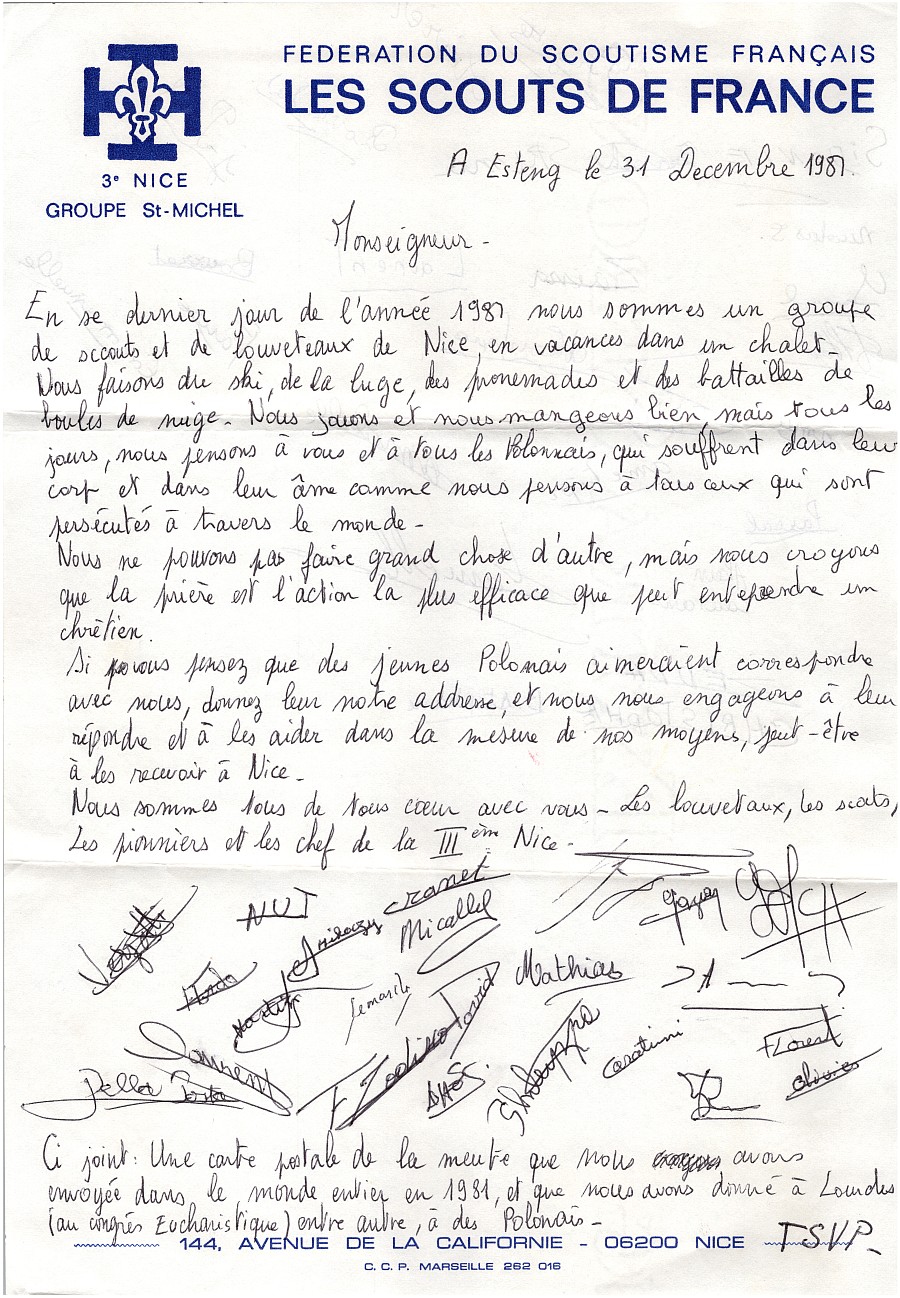 FEDERATION DU SCOUTISME FRANÇAIS
LES SCOUTS DE FRANCE
3e NICE
GROUPE St-MICHEL
A Esteng le 31 Decembre 1981.
Monseigneur -
En se dernier jour de l'année 1981 nous sommes un groupe
de sccouts et de louveteaux de Nice, en vacances dans un chalet-
Nous faisons du ski, de la luge, des promenades et des battailles de
boules de neige. Nous jouons et nous mangeons bien, mais tous les
jours, nous pensons à vous et à tous les Polonnais, qui souffrent dans leur
corp et dans leur âme comme nous pensons à tous ceux qui sont
persécutés à travers le monde-
Nous ne pouvons pas faire grand chose d'autre, mais nous croyons
que la prière est l'action la plus efficace que peut entreprendre un
chrètien.
Si vous pensez que des jeunes Polonais aimeraient correspondre
avec nous, donnez leur notre addresse, et nous nous engageons à leur
répondre et à les aider dans la mesure de nos moyens, peut-être
à les recevoir à Nice-
Nous sommes tous de tous cœur avec vous- Les louvetaux, les scouts,
Les pionniers et les chef de la IIIème Nice-
NUT
cranet
Micallef
Mathias
David
Laurent
Della Posta
F Zodino
caratini
Florent
olivier
Ci joint: Une carte postale de la meute que nous avons
envoyée dans le monde entier en 1981, et que nous avons donné à Lourdes
(au congrès Eucharistique) entre autre, à des Polonais-
TSVP-
144, AVENUE DE LA CALIFORNIE - 06200 NICE
C. C. P. MARSEILLE 262 016